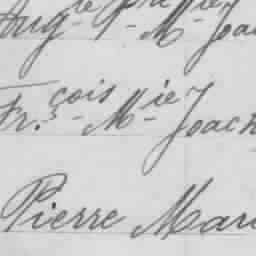 Aug.te P- M- Joac
Fr.çois- M-ie Joach
Pierre Mari